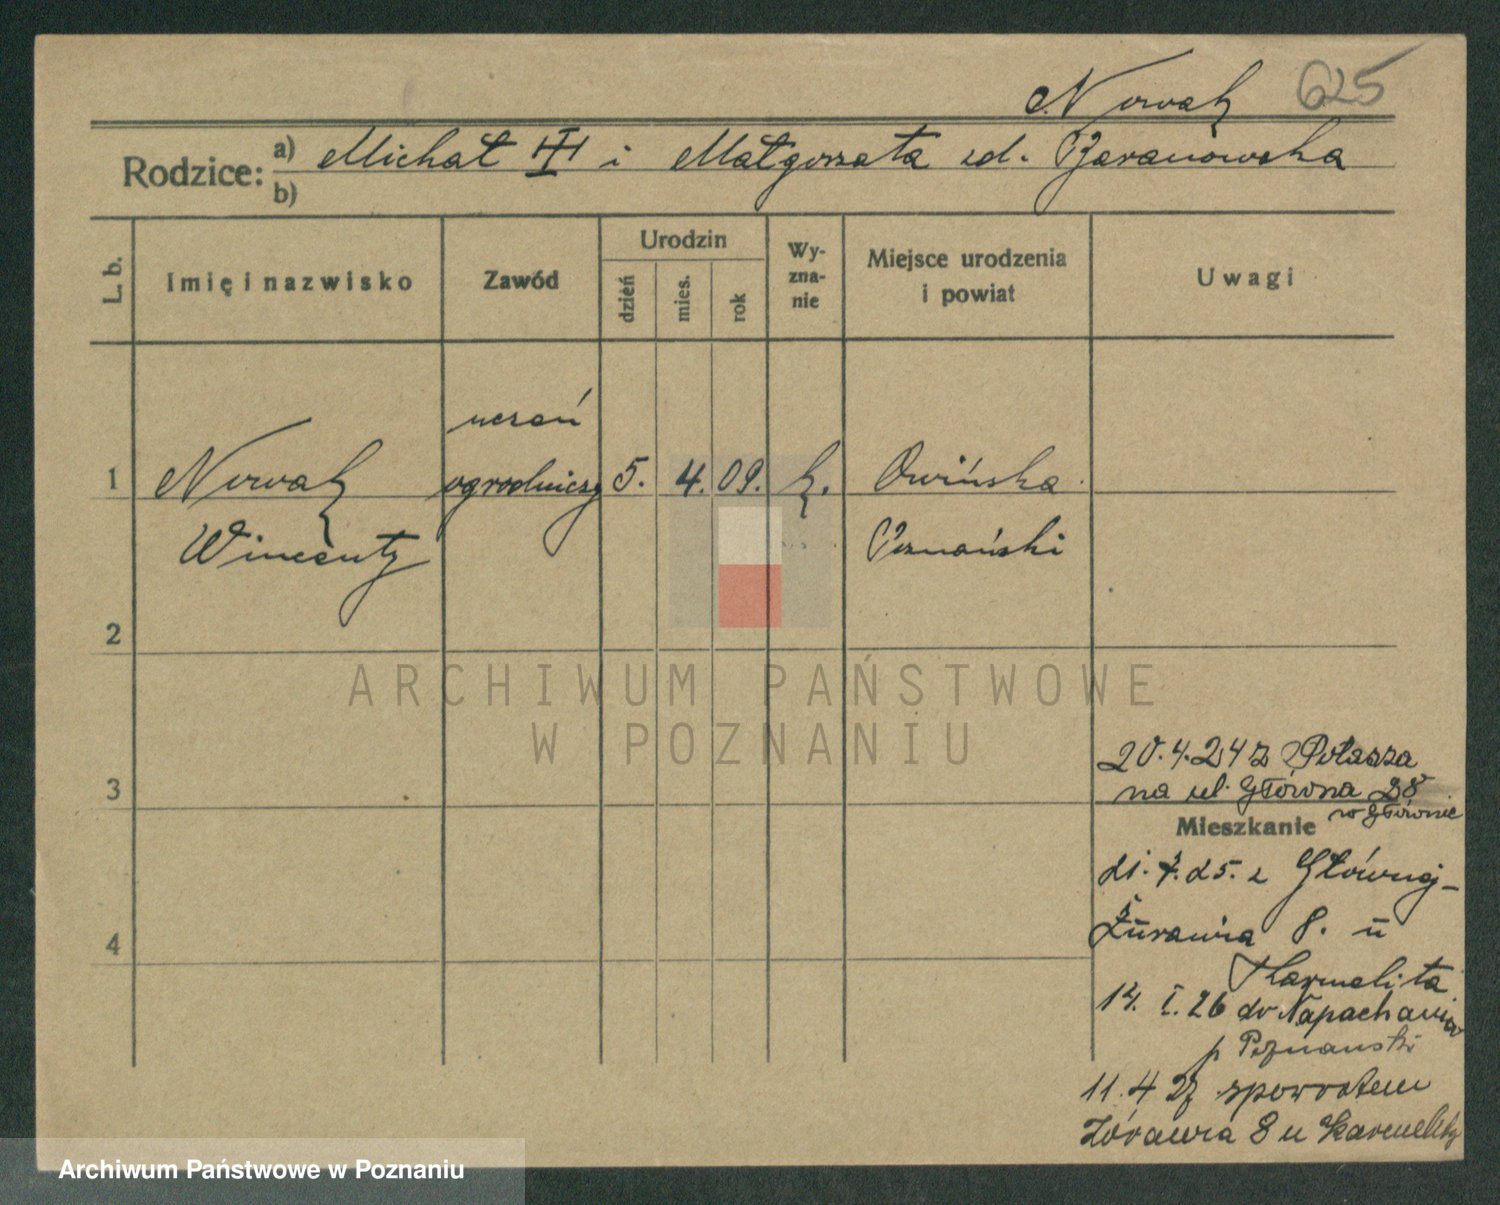 Nowak 625
Rodzice: a) Michał III i Małgorzata zd. Baranowska
b)
L. b.
Imię i nazwisko
Zawód
Urodzin
dzień
mies.
rok
Wy-
zna-
nie
Miejsce urodzenia
i powiat
Uwagi
uczeń
1 Nowak ogrodniczy 5. 4. 09. k. Owińska
Wincenty Poznański
2
ARCHIWUM PAŃSTWOWE
W POZNANIU
20.4.24 z
na ul. Główna 28
w Głównie
3
Mieszkanie
21. 25. z Głównej-
4
Żurawia 8. u
Karmelita
14. I. 26 do Napachania
p Poznański
11.4 27 spowrotem
Żórawia 8 u Karmelity
Archiwum Państwowe w Poznaniu